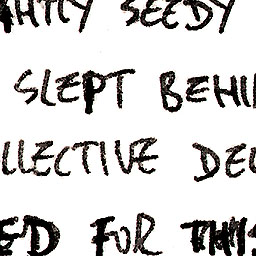 HTLY SEEDY
SLEPT BEHI
LLECTIVE DEL
ED FOR THIS